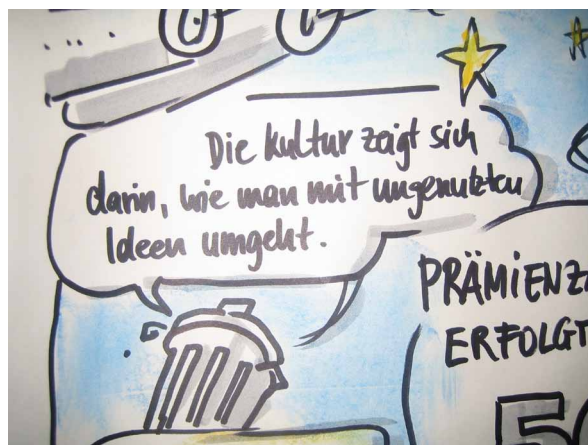 Die Kultur zeigt sich
darin, wie man mit ungenutzten
Ideen umgeht.
PRÄMIENZ
ERFOLGT